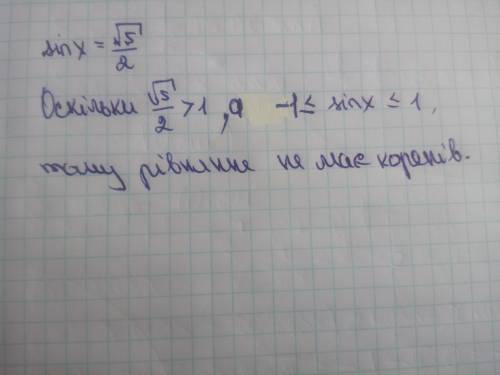 sinx = √5/2
Оскільки √5/2 > 1, а -1 ≤ sinx ≤ 1,
тому рівняння не має коренів.